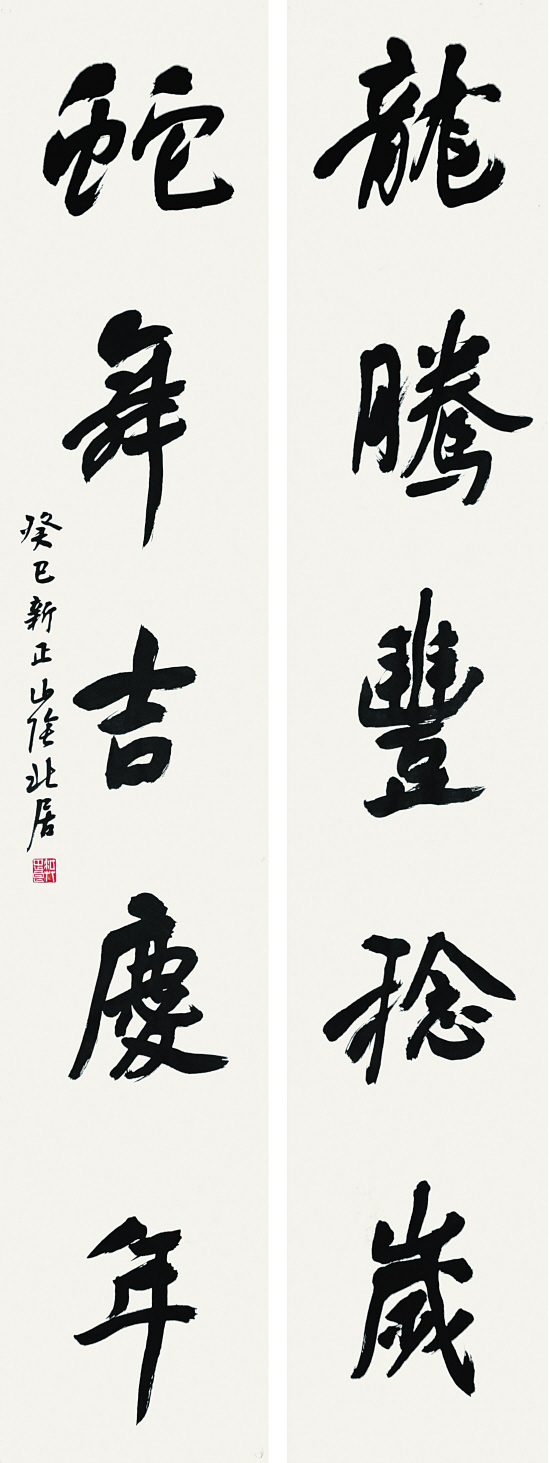 龍騰豐稔歲
蛇舞吉慶年
癸巳新正山陰北居